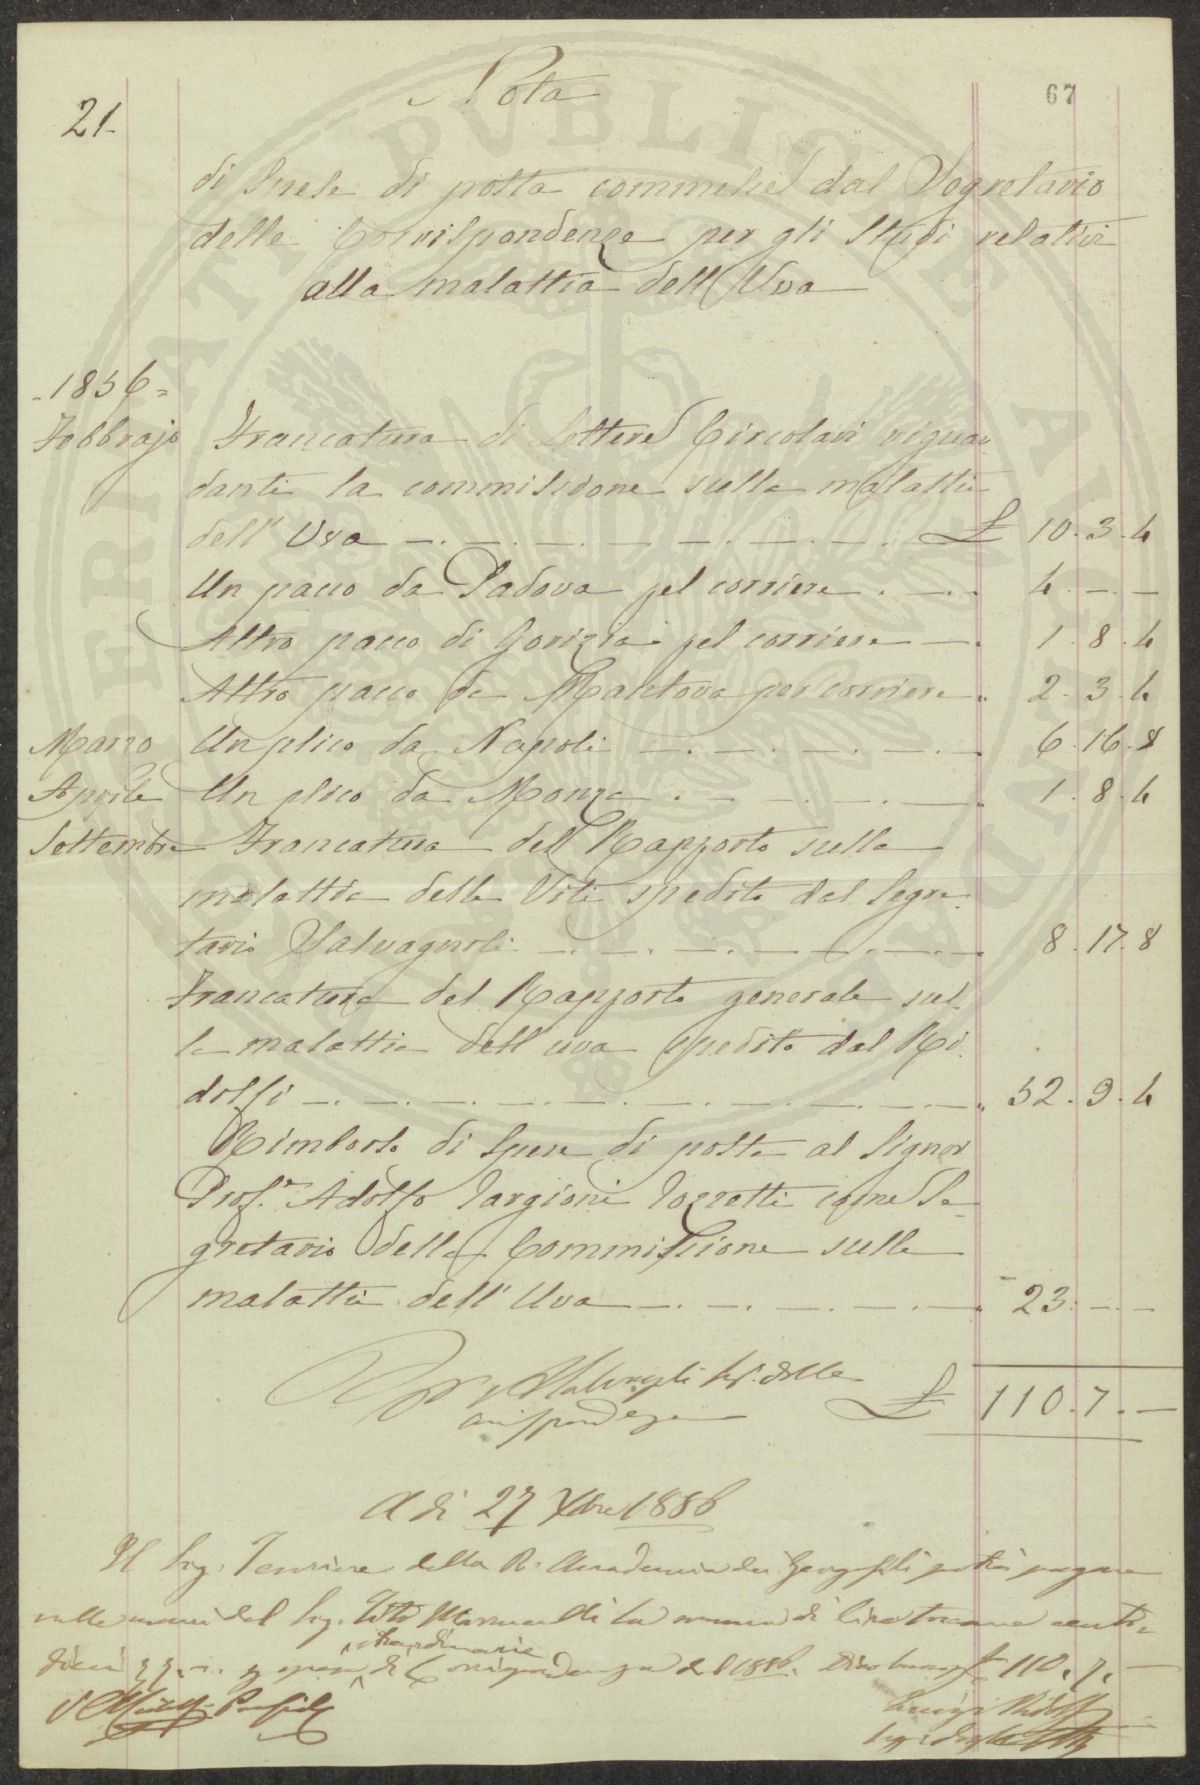 Nota
67
21.
di Spese di posta commesse dal Segretario
delle Corrispondenze per gli Studi relativi
alla malattia dell'Uva
1856
Febbrajo Francatura di Lettere Circolari riguar
danti la commissione sulla malattia
dell'Uva £ 10. 3. 4
Un pacco da Padova pel corriere 4. — . —
Altro pacco di Gorizia pel corriere 1. 8. 4
Altro pacco da Mantova per corriere 2. 3. 4
Marzo Un plico da Napoli 6. 16. 8
Aprile Un plico da Monza 1. 8. 4
Settembre Francatura del Rapporto sulla
malattia delle Viti spedito dal Segre
tario Salvagnoli 8. 17. 8
Francatura del Rapporto generale sul
la malattia dell'uva spedito dal Ri
dolfi 52. 9. 4
Rimborso di Spese di posta al Signor
Prof.r Adolfo Targioni Tozzetti come Se
gretario della Commissione sulla
malattia dell'Uva 23. — . —
Salvagnoli Seg. delle
corrispondenze
£ 110. 7. —
A dì 27 Xbre 1856
Il Sig. Tesoriere della R. Accademia dei Georgofili potrà pagare
nelle mani del Sig. Tito la somma di lire toscane cento
dieci di
straordinarie
Corrispondenza del 1856. Dico £ 110. 7. —
Luigi Ridolfi
PVBLICAE
PROSPERITATI AVGENDAE